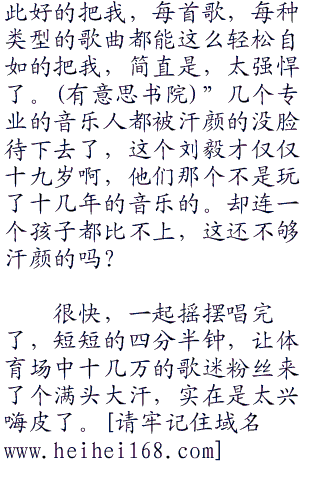 此好的把我，每首歌，每种
类型的歌曲都能这么轻松自
如的把我，简直是，太强悍
了。(有意思书院)”几个专
业的音乐人都被汗颜的没脸
待下去了，这个刘毅才仅仅
十九岁啊，他们那个不是玩
了十几年的音乐的。却连一
个孩子都比不上，这还不够
汗颜的吗？
很快，一起摇摆唱完
了，短短的四分半钟，让体
育场中十几万的歌迷粉丝来
了个满头大汗，实在是太兴
嗨皮了。[请牢记住域名
www.heihei168.com]